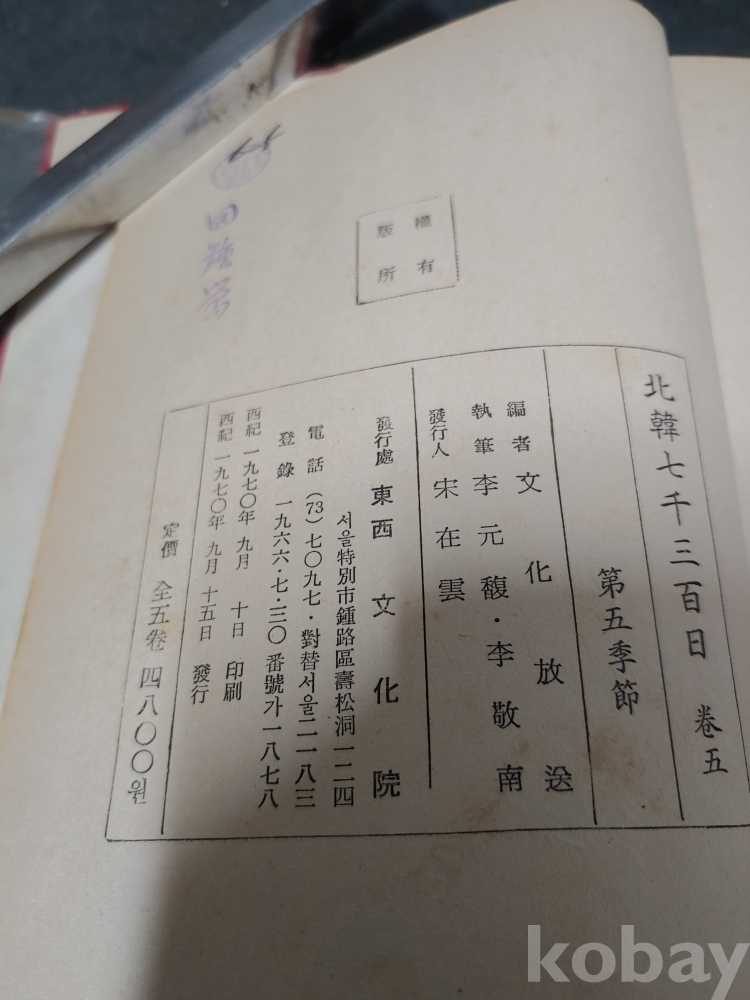 版權
所有
北韓七千三百日 卷五
第五季節
編者 文化放送
執筆 李元馥・李敬南
發行人 宋在雲
發行處 東西文化院
서울特別市鍾路區壽松洞一二四
電話 (73) 七〇九七・對替서울二一一八三
登錄 一九六六・七・三〇 番號가一八七八
西紀 一九七〇年 九月 十日 印刷
西紀 一九七〇年 九月 十五日 發行
定價 全五卷 四八〇〇원
kobay